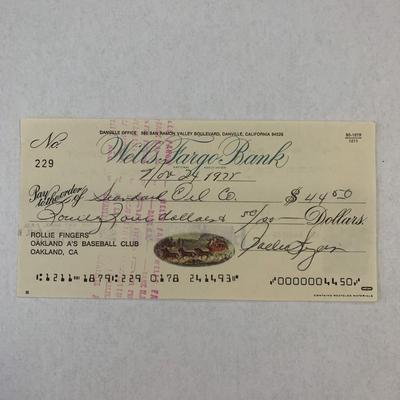 DANVILLE OFFICE 565 SAN RAMON VALLEY BOULEVARD, DANVILLE, CALIFORNIA 94526
90-1879
1211
No.
229
Wells Fargo Bank
NATIONAL ASSOCIATION
Nov 29 1972
Pay to the order of Standard Oil Co. $ 44.50
Fourty Four dollars & 50/100 Dollars
ROLLIE FINGERS
OAKLAND A'S BASEBALL CLUB
OAKLAND, CA
Rollie Fingers
1211 1879 229 0178 241493 0000004450
CONTAINS RECYCLED MATERIALS